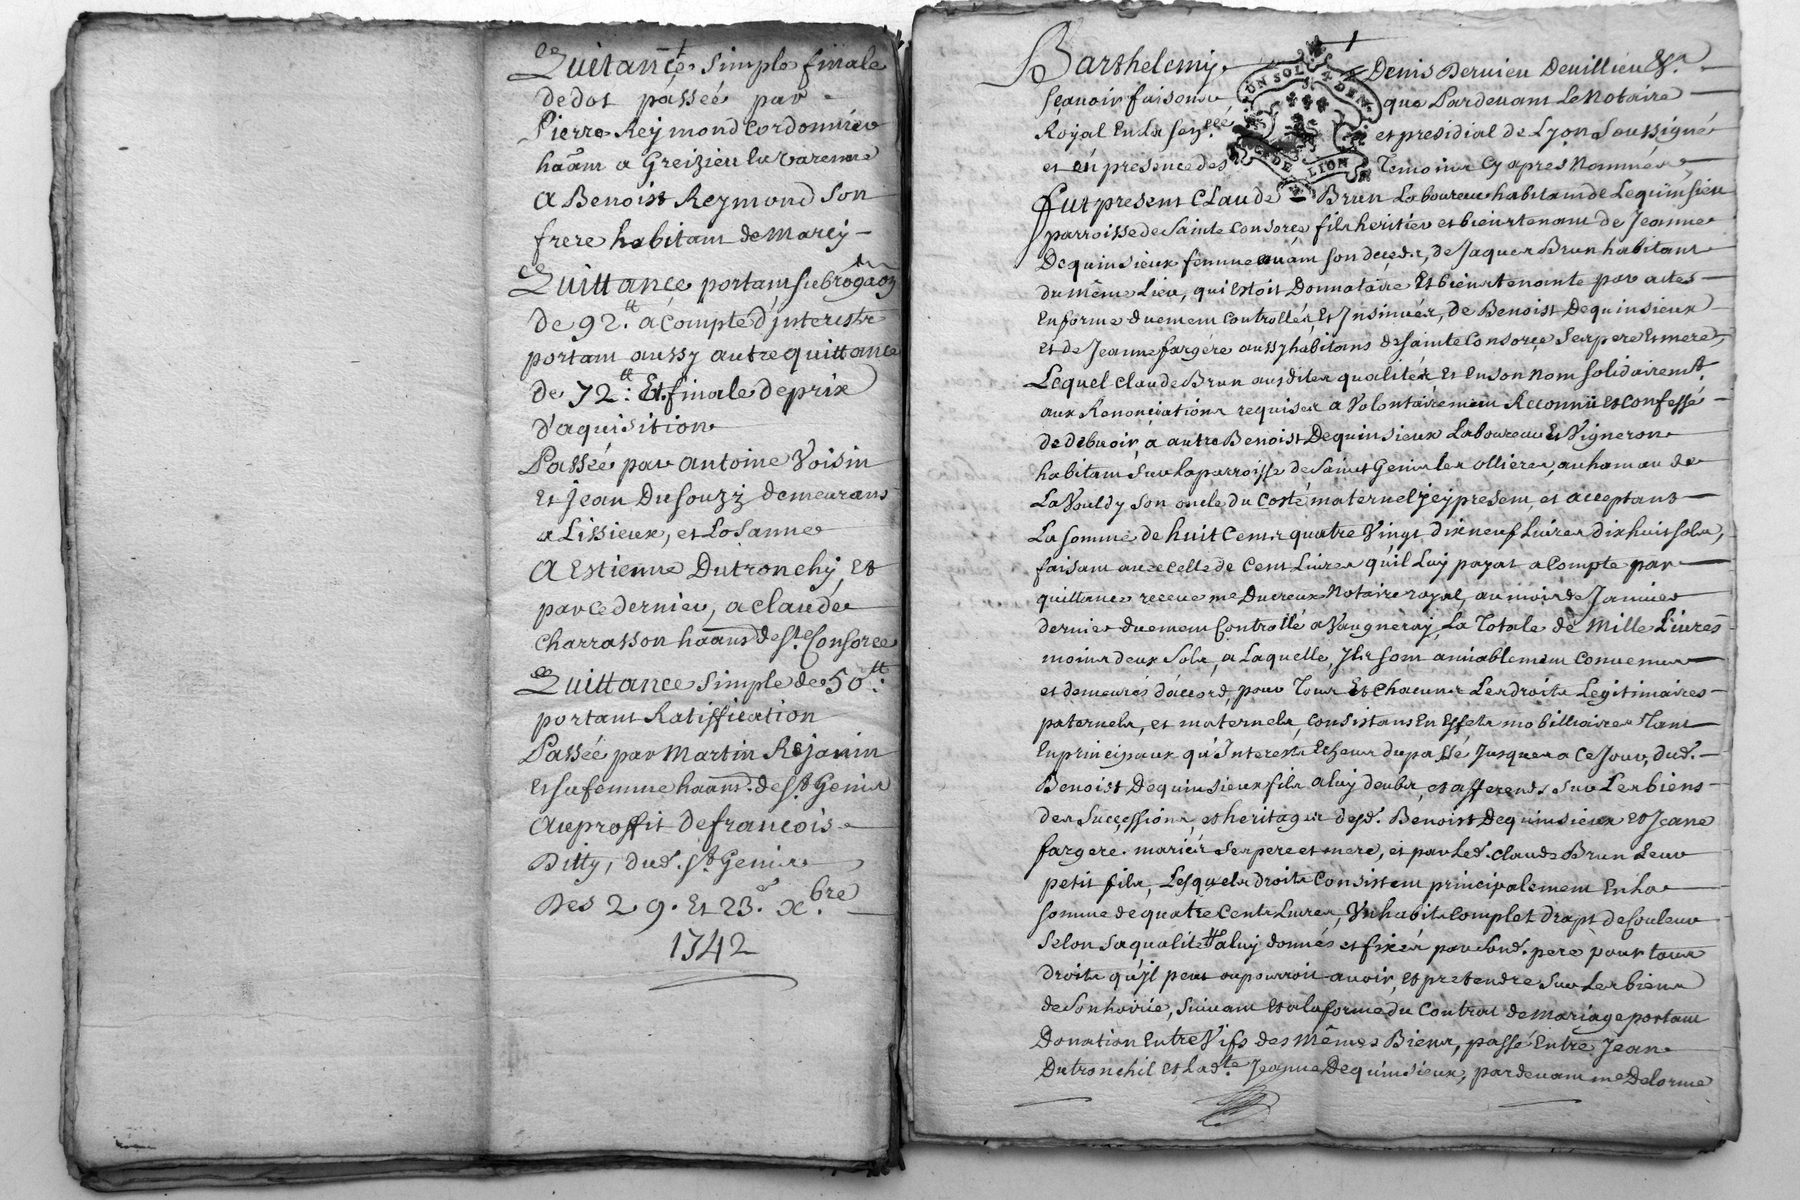 Quitançe simple finale
de dot passée par
Pierre Reymond Cordonnier
haant a Greizieu la Varenne
A Benoist Reymond son
frere habitant de Marcy
Quittançe portant subrogaon
de 92.tt a Compte d'jnterests
portant aussy autre quittance
de 72.tt Et finale de prix
d'aquisition
Passée par antoine Voisin
Et jean Dusouzy demeurans
a Lissieux, et Losanne
A Estienne Dutronchy, Et
par ce dernier, a claude
Charrasson haant de Ste Consorce
Quittance simple de 50tt.
portant Ratiffication
Passée par Martin Rejanin
Et sa femme haant. de St Genis
Au proffit de françois
Pitty, dud. St Genis
Des 29. Et 23.e Xbre
1742
Barthelemy Denis Dervieu Devillieu &r.
sçavoir faisons que Pardevant Le Notaire
UN SOL 4 DEN.
Royal En la senssée et presidial de Lyon soussigné
et en presence des Temoins cy apres Nommés,
G. DE LION
fut present CLaude Brun Laboureur habitant de Lequinsieu
parroisse de Sainte Consorce fils heritier et bientenant de Jeanne
Dequinsieux femme avant son deces, de Jaques Brun habitant
du même Lieu, qui Estoit Donnataire Et bientenante par actes
En forme duement Controllés, Et Jnsinués, de Benoist Dequinsieux
et de Jeanne fargére aussy habitans de sainte Consorçe, ses pere Et mere,
Lequel Claude Brun ausdites qualités Et en son Nom solidairemt.
aux Renonciations requises a Volontairement Reconnü Et Confessé
de debvoir, à autre Benoist Dequinsieux Laboureur Et Vigneron
habitant sur la parroisse de Saint Genis les ollieres, au hamau de
La Vouldy son oncle du Costé maternel jcy present, et acceptant
La somme de huit Cents quatre Vingt dix neuf Livres dix huit sols,
faisant avec celle de Cent Livres qu'il Luy payat a Compte par
quittance receue me Ducreux Notaire royal, au mois de Janvier
dernier duement Controllé a Vaugneray, La Totale de Mille Livres
moins deux sols, a Laquelle, Jls sont amiablement Convenus
et demeurés d'accord, pour Tous Et Chacuns Les droits Legitimaires
paternels, et maternels, Consistans En Effets mobilliaires Tant
En principaux qu'Jnterests Echeus du passé Jusques a Ce Jour, dud.
Benoist Dequinsieux fils a luy deubs, et afferents sur Les biens
des Successions, et heritages desd. Benoist Dequinsieux et Jeane
fargere. mariés ses pere et mere, et par Led. Claude Brun Leur
petit fils, Lesquels droits Consistent principalement En La
somme de quatre Cents Livres, Un habit Complet drapt de Couleur
selon sa qualité a luy donnés et fixés par sond. pere pour tous
droits qu'jl peut ou pourroit avoir, et pretendre sur Les biens
de son hoirie, suivant Et a la forme du Contrat de mariage portant
Donation Entre Vifs des mêmes Biens, passé Entre Jean
Dutronchil et Ladte. Jeanne Dequinsieux, pardevant me Delorme